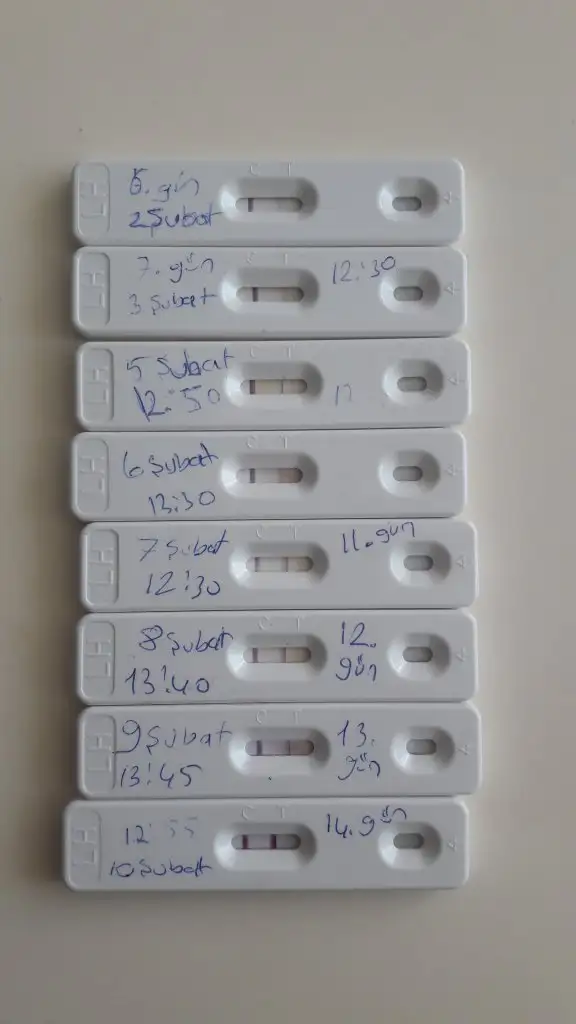 C T
LH
6. gün
2 Şubat
C T
LH
7. gün
12:30
3 Şubat
C T
LH
5 Şubat
12:50
C T
LH
6 Şubat
13:30
C T
LH
7 Şubat
11. gün
12:30
C T
LH
8 Şubat
12.
13:40
gün
C T
LH
9 Şubat
13.
13:45
gün
C T
LH
12:55
14. gün
10 Şubat